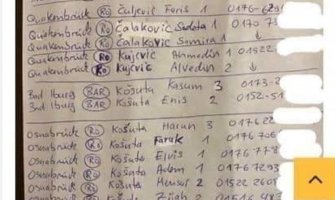 Quakenbrück (RO) Čuljević Feris 1 0176-629
Quakenbrück (RO) Čalaković Sadata 1 0170 73
Quakenbrück (RO) Čalaković Samira 1
Quakenbrück (RO) Kujević Ahmedin 1 01522
Quakenbrück (RO) Kujević Alvedin 2
Bad Iburg (BAR) Košuta Kasum 3 0173-2
Bad Iburg (BAR) Košuta Enis 2 0152-51
Osnabrück (RO) Košuta Harun 3 017622
Osnabrück (RO) Košuta Faruk 1 0176706
Osnabrück (RO) Košuta Elvis 1 0176778
Osnabrück (RO) Košuta Adem 1 01767293
Osnabrück (RO) Košuta Mensur 2 01522 2601
Osnabrück (RO) Košuta 2 01516483